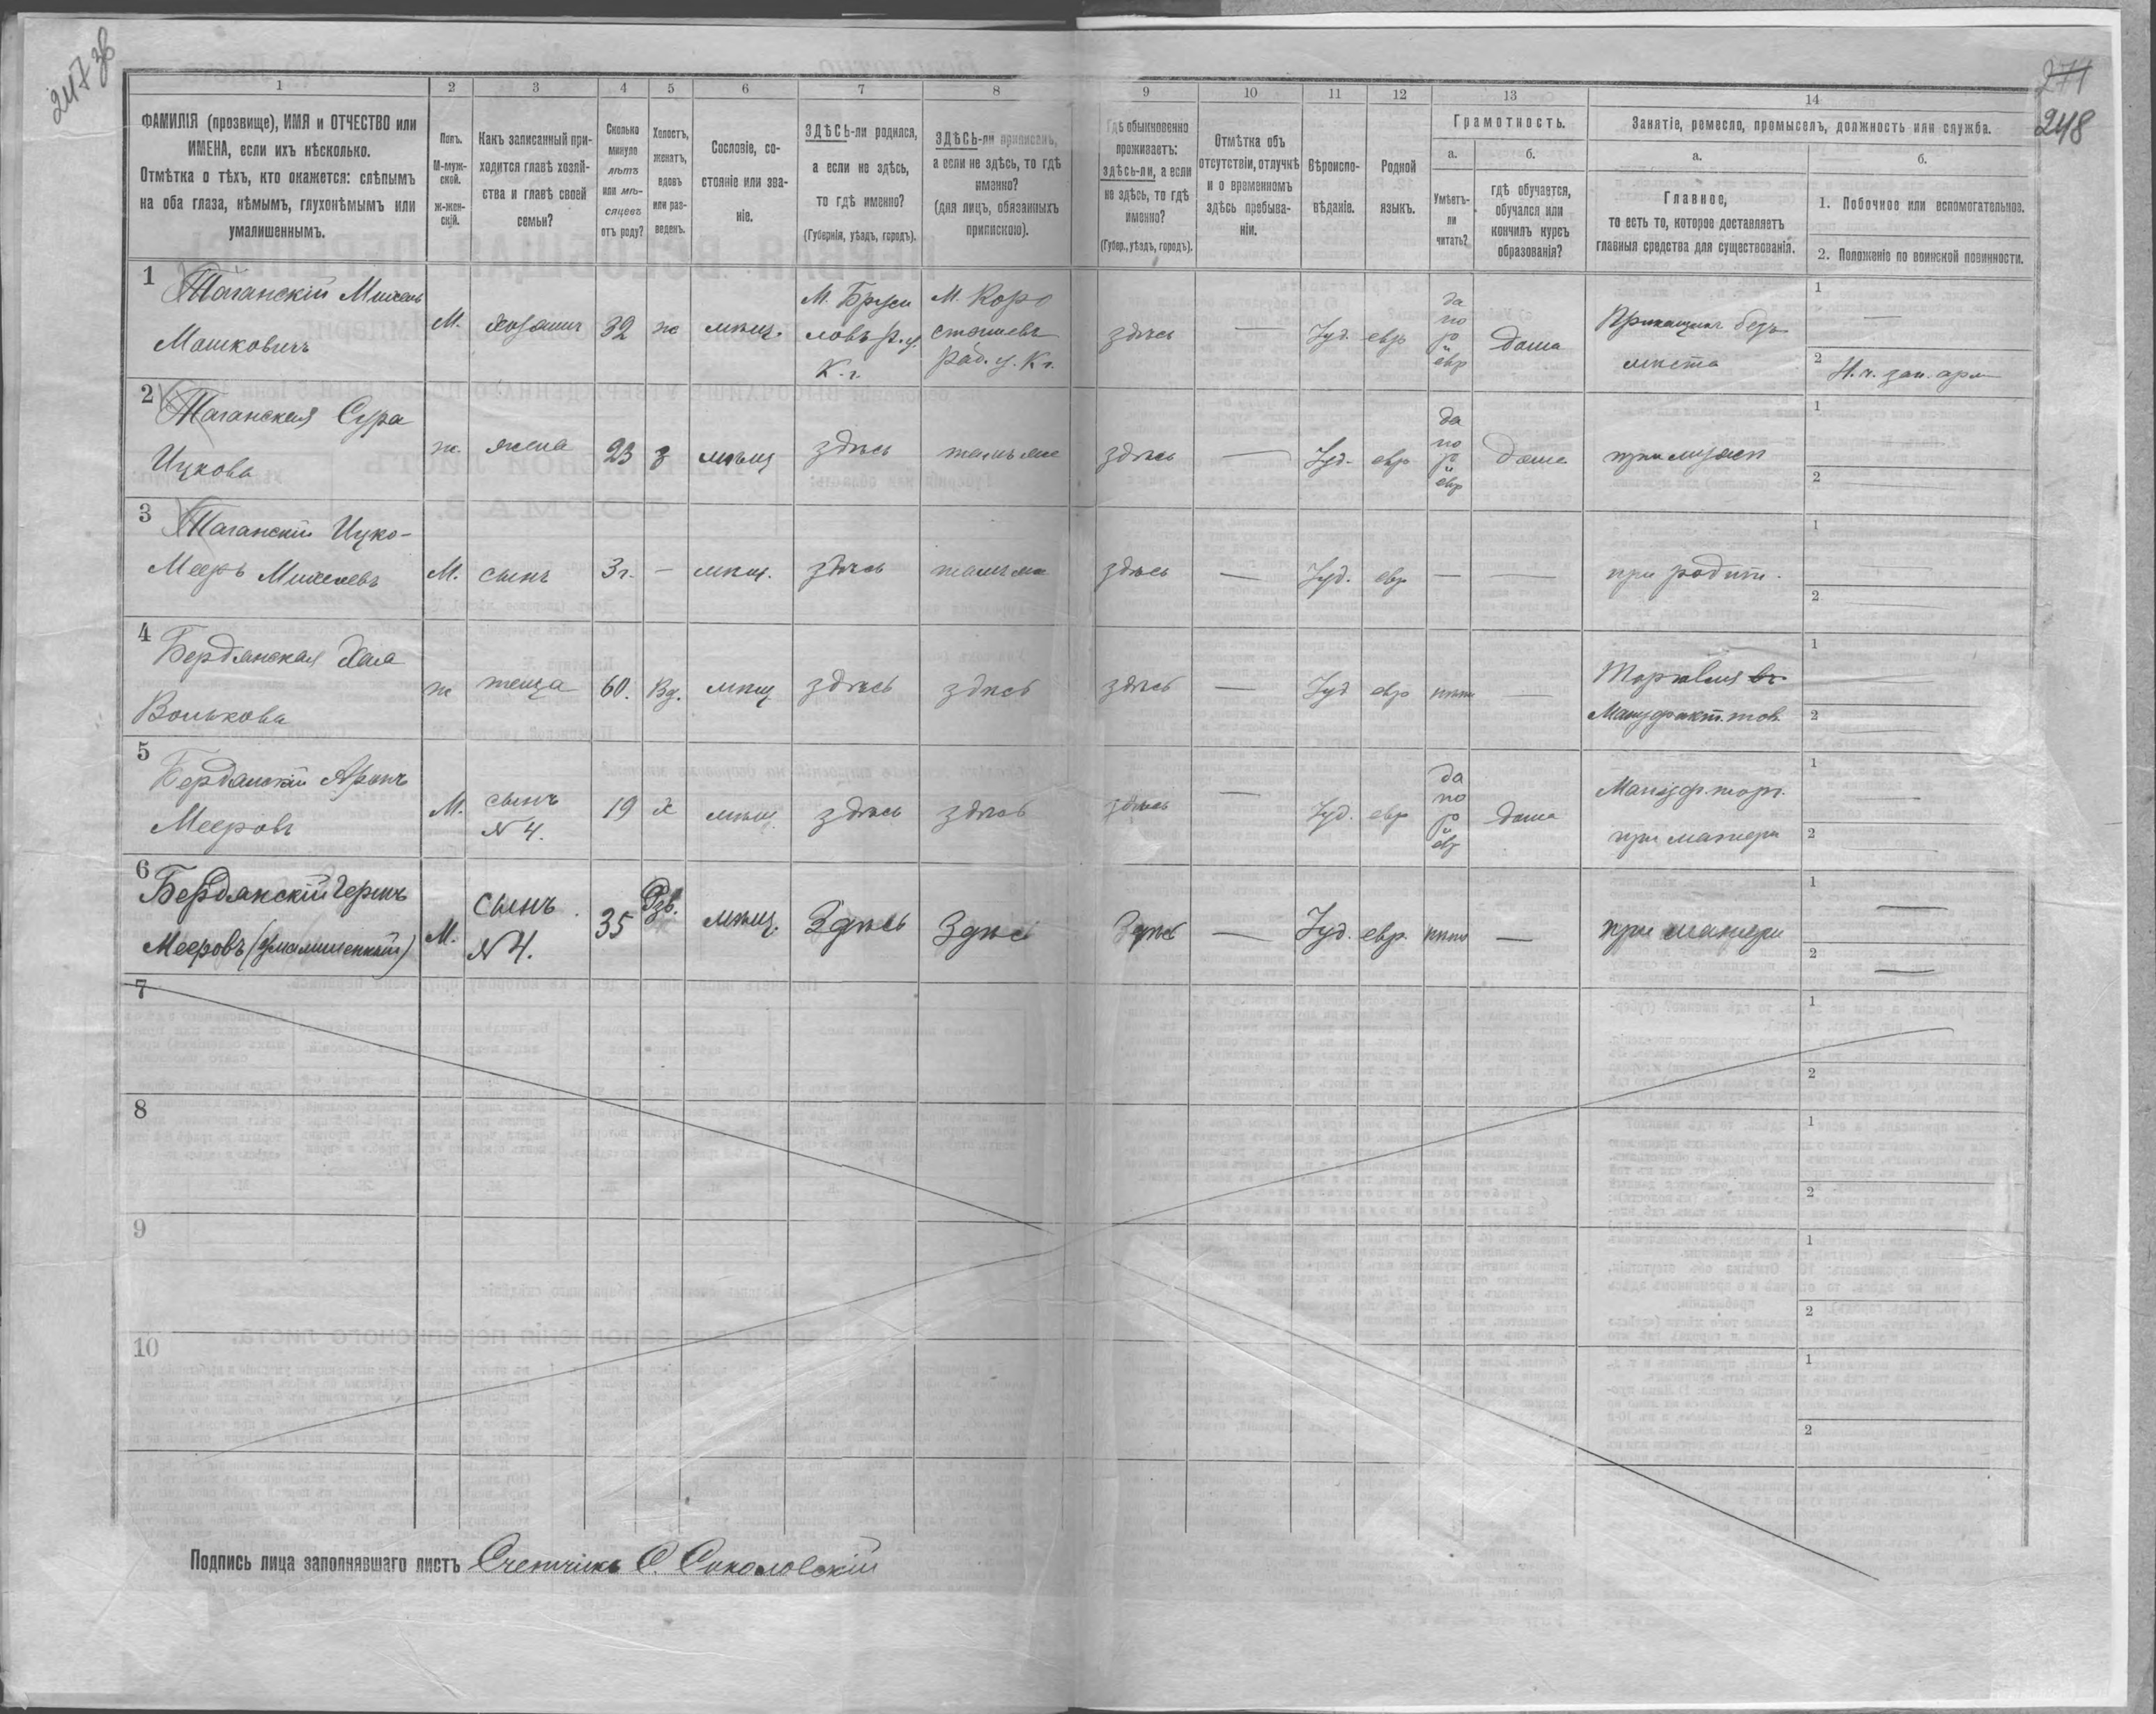 247 об
271
248
1
2
3
4
5
6
7
8
9
10
11
12
13
14
ФАМИЛІЯ (прозвище), ИМЯ и ОТЧЕСТВО или
ИМЕНА, если ихъ нѣсколько.
Отмѣтка о тѣхъ, кто окажется: слѣпымъ
на оба глаза, нѣмымъ, глухонѣмымъ или
умалишеннымъ.
Полъ.
М-муж-
ской.
ж-жен-
скій.
Какъ записанный при-
ходится главѣ хозяй-
ства и главѣ своей
семьи?
Сколько
минуло
лѣтъ
или мѣ-
сяцевъ
отъ роду?
Холостъ,
женатъ,
вдовъ
или раз-
веденъ.
Сословіе, со-
стояніе или зва-
ніе.
ЗДѢСЬ-ли родился,
а если не здѣсь,
то гдѣ именно?
(Губернія, уѣздъ, городъ).
ЗДѢСЬ-ли приписанъ,
а если не здѣсь, то гдѣ
именно?
(для лицъ, обязанныхъ
припискою).
Гдѣ обыкновенно
проживаетъ:
здѣсь-ли, а если
не здѣсь, то гдѣ
именно?
(Губер., уѣздъ, городъ).
Отмѣтка объ
отсутствіи, отлучкѣ
и о временномъ
здѣсь пребыва-
ніи.
Вѣроиспо-
вѣданіе.
Родной
языкъ.
Грамотность.
а.
Умѣетъ-
ли
читать?
б.
гдѣ обучается,
обучался или
кончилъ курсъ
образованія?
Занятіе, ремесло, промыселъ, должность или служба.
а.
Главное,
то есть то, которое доставляетъ
главныя средства для существованія.
б.
1. Побочное или вспомогательное.
2. Положеніе по воинской повинности.
1
Таганскій Михель
Мошковичъ
М. хозяинъ 32 ж мѣщ.
М. Бруси
ловъ Р. у.
К. г.
М. Коро
стышевъ
Рад. у. К г.
здѣсь — Іуд. евр
да
по
р
и
евр
дома
Прикащикъ безъ
мѣста
1 —
2 Н. ч. зап. арм
2
Таганская Сура
Ицкова
ж. жена 23 з мѣщ здѣсь тамъ же здѣсь — Іуд. евр
да
по
р
и
евр
дома при мужѣ
1
2
3
Таганскій Ицко-
Мееръ Михелевъ
М. сынъ 3г. — мѣщ. здѣсь тамъ же здѣсь — Іуд. евр — — при родит.
1
2
4
Бердянская Хая
Волькова
ж теща 60. Вд. мѣщ здѣсь здѣсь здѣсь — Іуд евр нѣтъ —
Торговля въ
Мануфакт. тов.
1
2
5
Бердянскій Аронъ
Мееровъ
М. сынъ
N 4.
19 х мѣщ. здѣсь здѣсь здѣсь — Іуд. евр
да
по
р
и
евр
дома
Мануф. торг.
при матери
1
2
6
Бердянскій Гершъ
Мееровъ (умалишенный)
М. сынъ
N 4.
35 Рзв. мѣщ. Здѣсь Здѣсь Здѣсь — Іуд. евр. нѣтъ — при матери
1 —
2 —
7
1
2
8
1
2
9
1
2
10
1
2
Подпись лица заполнявшаго листъ Счетчикъ С. Соколовскій